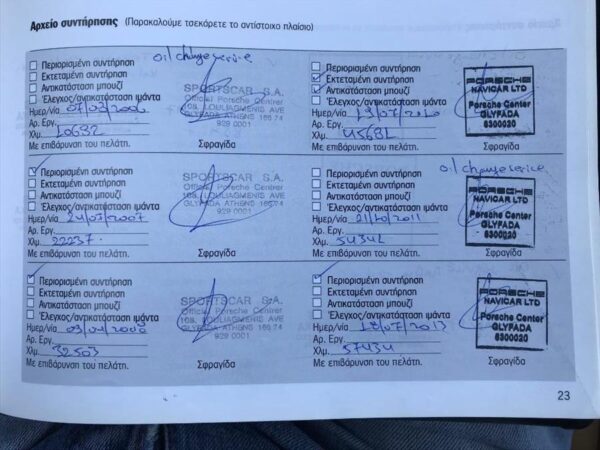 Αρχείο συντήρησης (Παρακαλούμε τσεκάρετε το αντίστοιχο πλαίσιο)
Περιορισμένη συντήρηση oil change service
Εκτεταμένη συντήρηση
Αντικατάσταση μπουζί
Έλεγχος/αντικατάσταση ιμάντα
Ημερ/νία
Αρ. Εργ.
Χλμ. 10632
Με επιβάρυνση του πελάτη. Σφραγίδα
SPORTSCAR S.A.
Official Porsche Center
108, VOULIAGMENIS AVE
GLYFADA ATHENS 166 74
929 0001
Περιορισμένη συντήρηση
Εκτεταμένη συντήρηση
Αντικατάσταση μπουζί
Έλεγχος/αντικατάσταση ιμάντα
Ημερ/νία 19/07/2010
Αρ. Εργ.
Χλμ. 45631
Με επιβάρυνση του πελάτη. Σφραγίδα
PORSCHE
NAVICAR LTD
Porsche Center
GLYFADA
6300020
Περιορισμένη συντήρηση
Εκτεταμένη συντήρηση
Αντικατάσταση μπουζί
Έλεγχος/αντικατάσταση ιμάντα
Ημερ/νία 24/07/2007
Αρ. Εργ.
Χλμ. 22237
Με επιβάρυνση του πελάτη. Σφραγίδα
SPORTSCAR S.A.
Official Porsche Center
108, VOULIAGMENIS AVE
GLYFADA ATHENS 166 74
929 0001
Περιορισμένη συντήρηση oil change service
Εκτεταμένη συντήρηση
Αντικατάσταση μπουζί
Έλεγχος/αντικατάσταση ιμάντα
Ημερ/νία 21/10/2011
Αρ. Εργ.
Χλμ.
Με επιβάρυνση του πελάτη. Σφραγίδα
PORSCHE
NAVICAR LTD
Porsche Center
GLYFADA
6300020
Περιορισμένη συντήρηση
Εκτεταμένη συντήρηση
Αντικατάσταση μπουζί
Έλεγχος/αντικατάσταση ιμάντα
Ημερ/νία
Αρ. Εργ.
Χλμ. 32503
Με επιβάρυνση του πελάτη. Σφραγίδα
SPORTSCAR S.A.
Official Porsche Center
108, VOULIAGMENIS AVE
GLYFADA ATHENS 166 74
929 0001
Περιορισμένη συντήρηση
Εκτεταμένη συντήρηση
Αντικατάσταση μπουζί
Έλεγχος/αντικατάσταση ιμάντα
Ημερ/νία
Αρ. Εργ.
Χλμ. 57434
Με επιβάρυνση του πελάτη. Σφραγίδα
PORSCHE
NAVICAR LTD
Porsche Center
GLYFADA
6300020
23